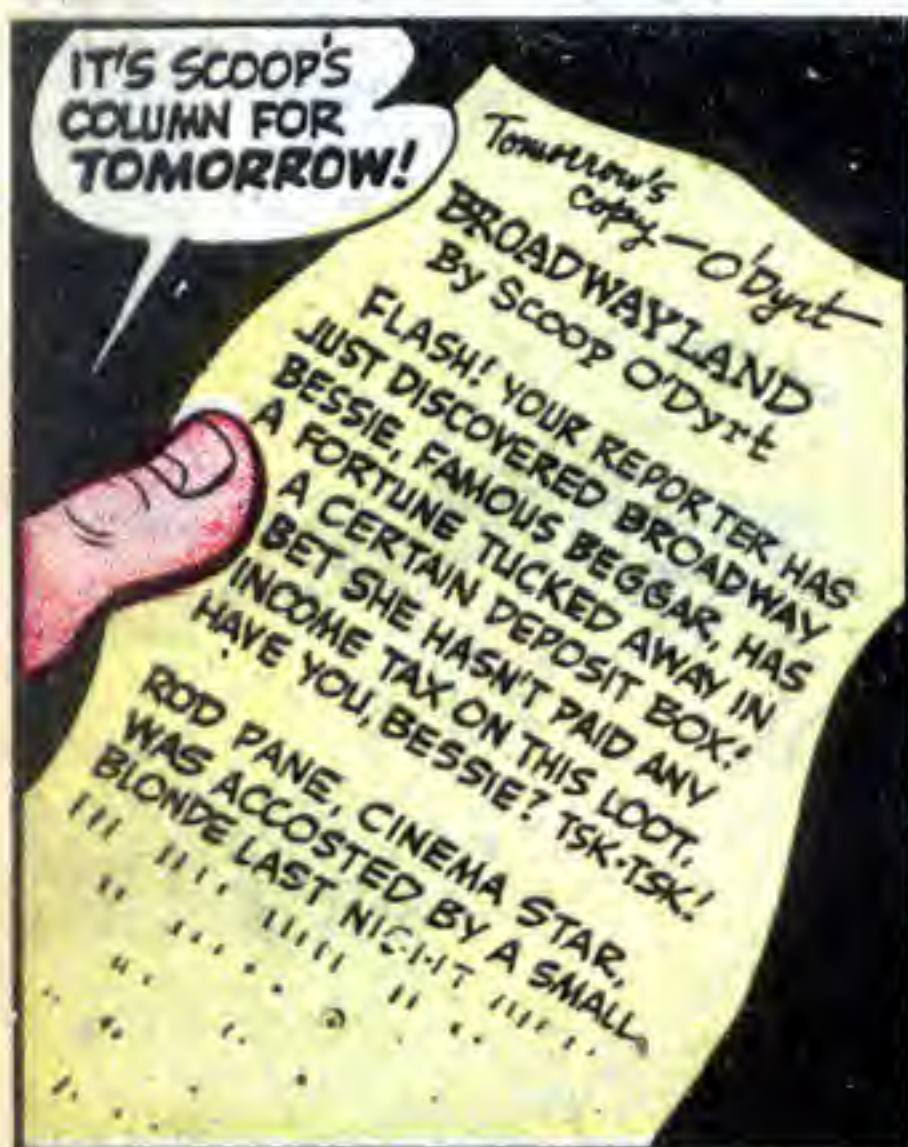 IT'S SCOOP'S
COLUMN FOR
TOMORROW!
Tomorrow's
copy — O'Dyrt
BROADWAYLAND
By SCOOP O'Dyrt
FLASH! YOUR REPORTER HAS
JUST DISCOVERED BROADWAY
BESSIE, FAMOUS BEGGAR, HAS
A FORTUNE TUCKED AWAY IN
A CERTAIN DEPOSIT BOX!
BET SHE HASN'T PAID ANY
INCOME TAX ON THIS LOOT,
HAVE YOU, BESSIE? TSK-TSK!
ROD PANE, CINEMA STAR,
WAS ACCOSTED BY A SMALL
BLONDE LAST NIGHT